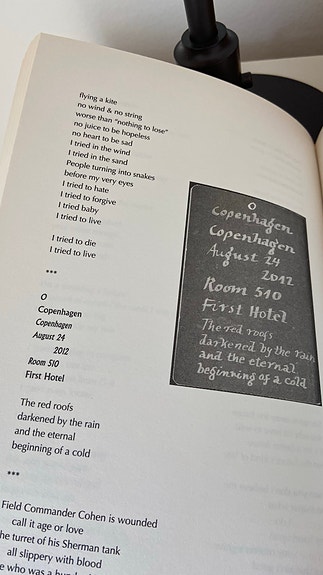 flying a kite
no wind & no string
worse than "nothing to lose"
no juice to be hopeless
no heart to be sad
I tried in the wind
I tried in the sand
People turning into snakes
before my very eyes
I tried to hate
I tried to forgive
I tried baby
I tried to live
I tried to die
I tried to live
***
O
Copenhagen
Copenhagen
August 24
2012
Room 510
First Hotel
The red roofs
darkened by the rain
and the eternal
beginning of a cold
***
Field Commander Cohen is wounded
call it age or love
the turret of his Sherman tank
all slippery with blood
who was a
O
Copenhagen
Copenhagen
August 24
2012
Room 510
First Hotel
The red roofs
darkened by the rain
and the eternal
beginning of a cold